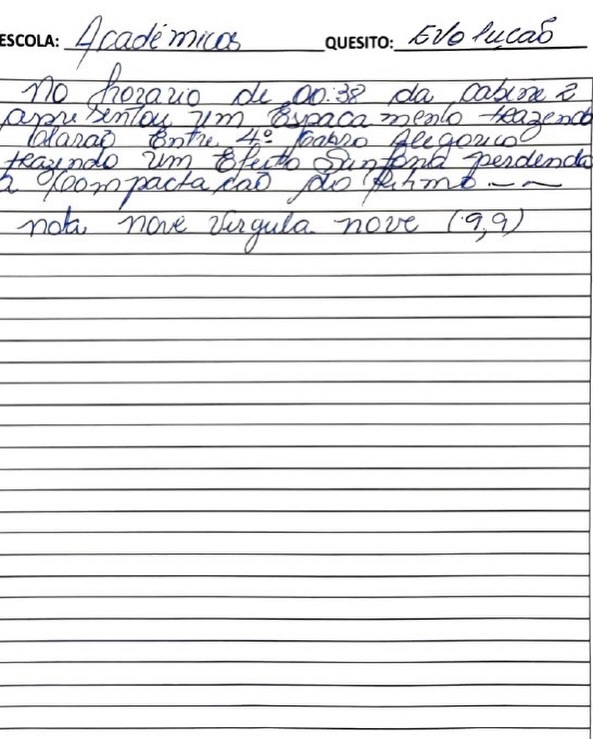 ESCOLA: Acadêmicos QUESITO: Evolução
No horario de 00:38 da cabine 2
apresentou um Espaçamento trazendo
Clarão Entre 4º Carro Alegorico
trazendo um Efeito Sanfona perdendo
a compactação do Ritmo
nota nove virgula nove (9,9)